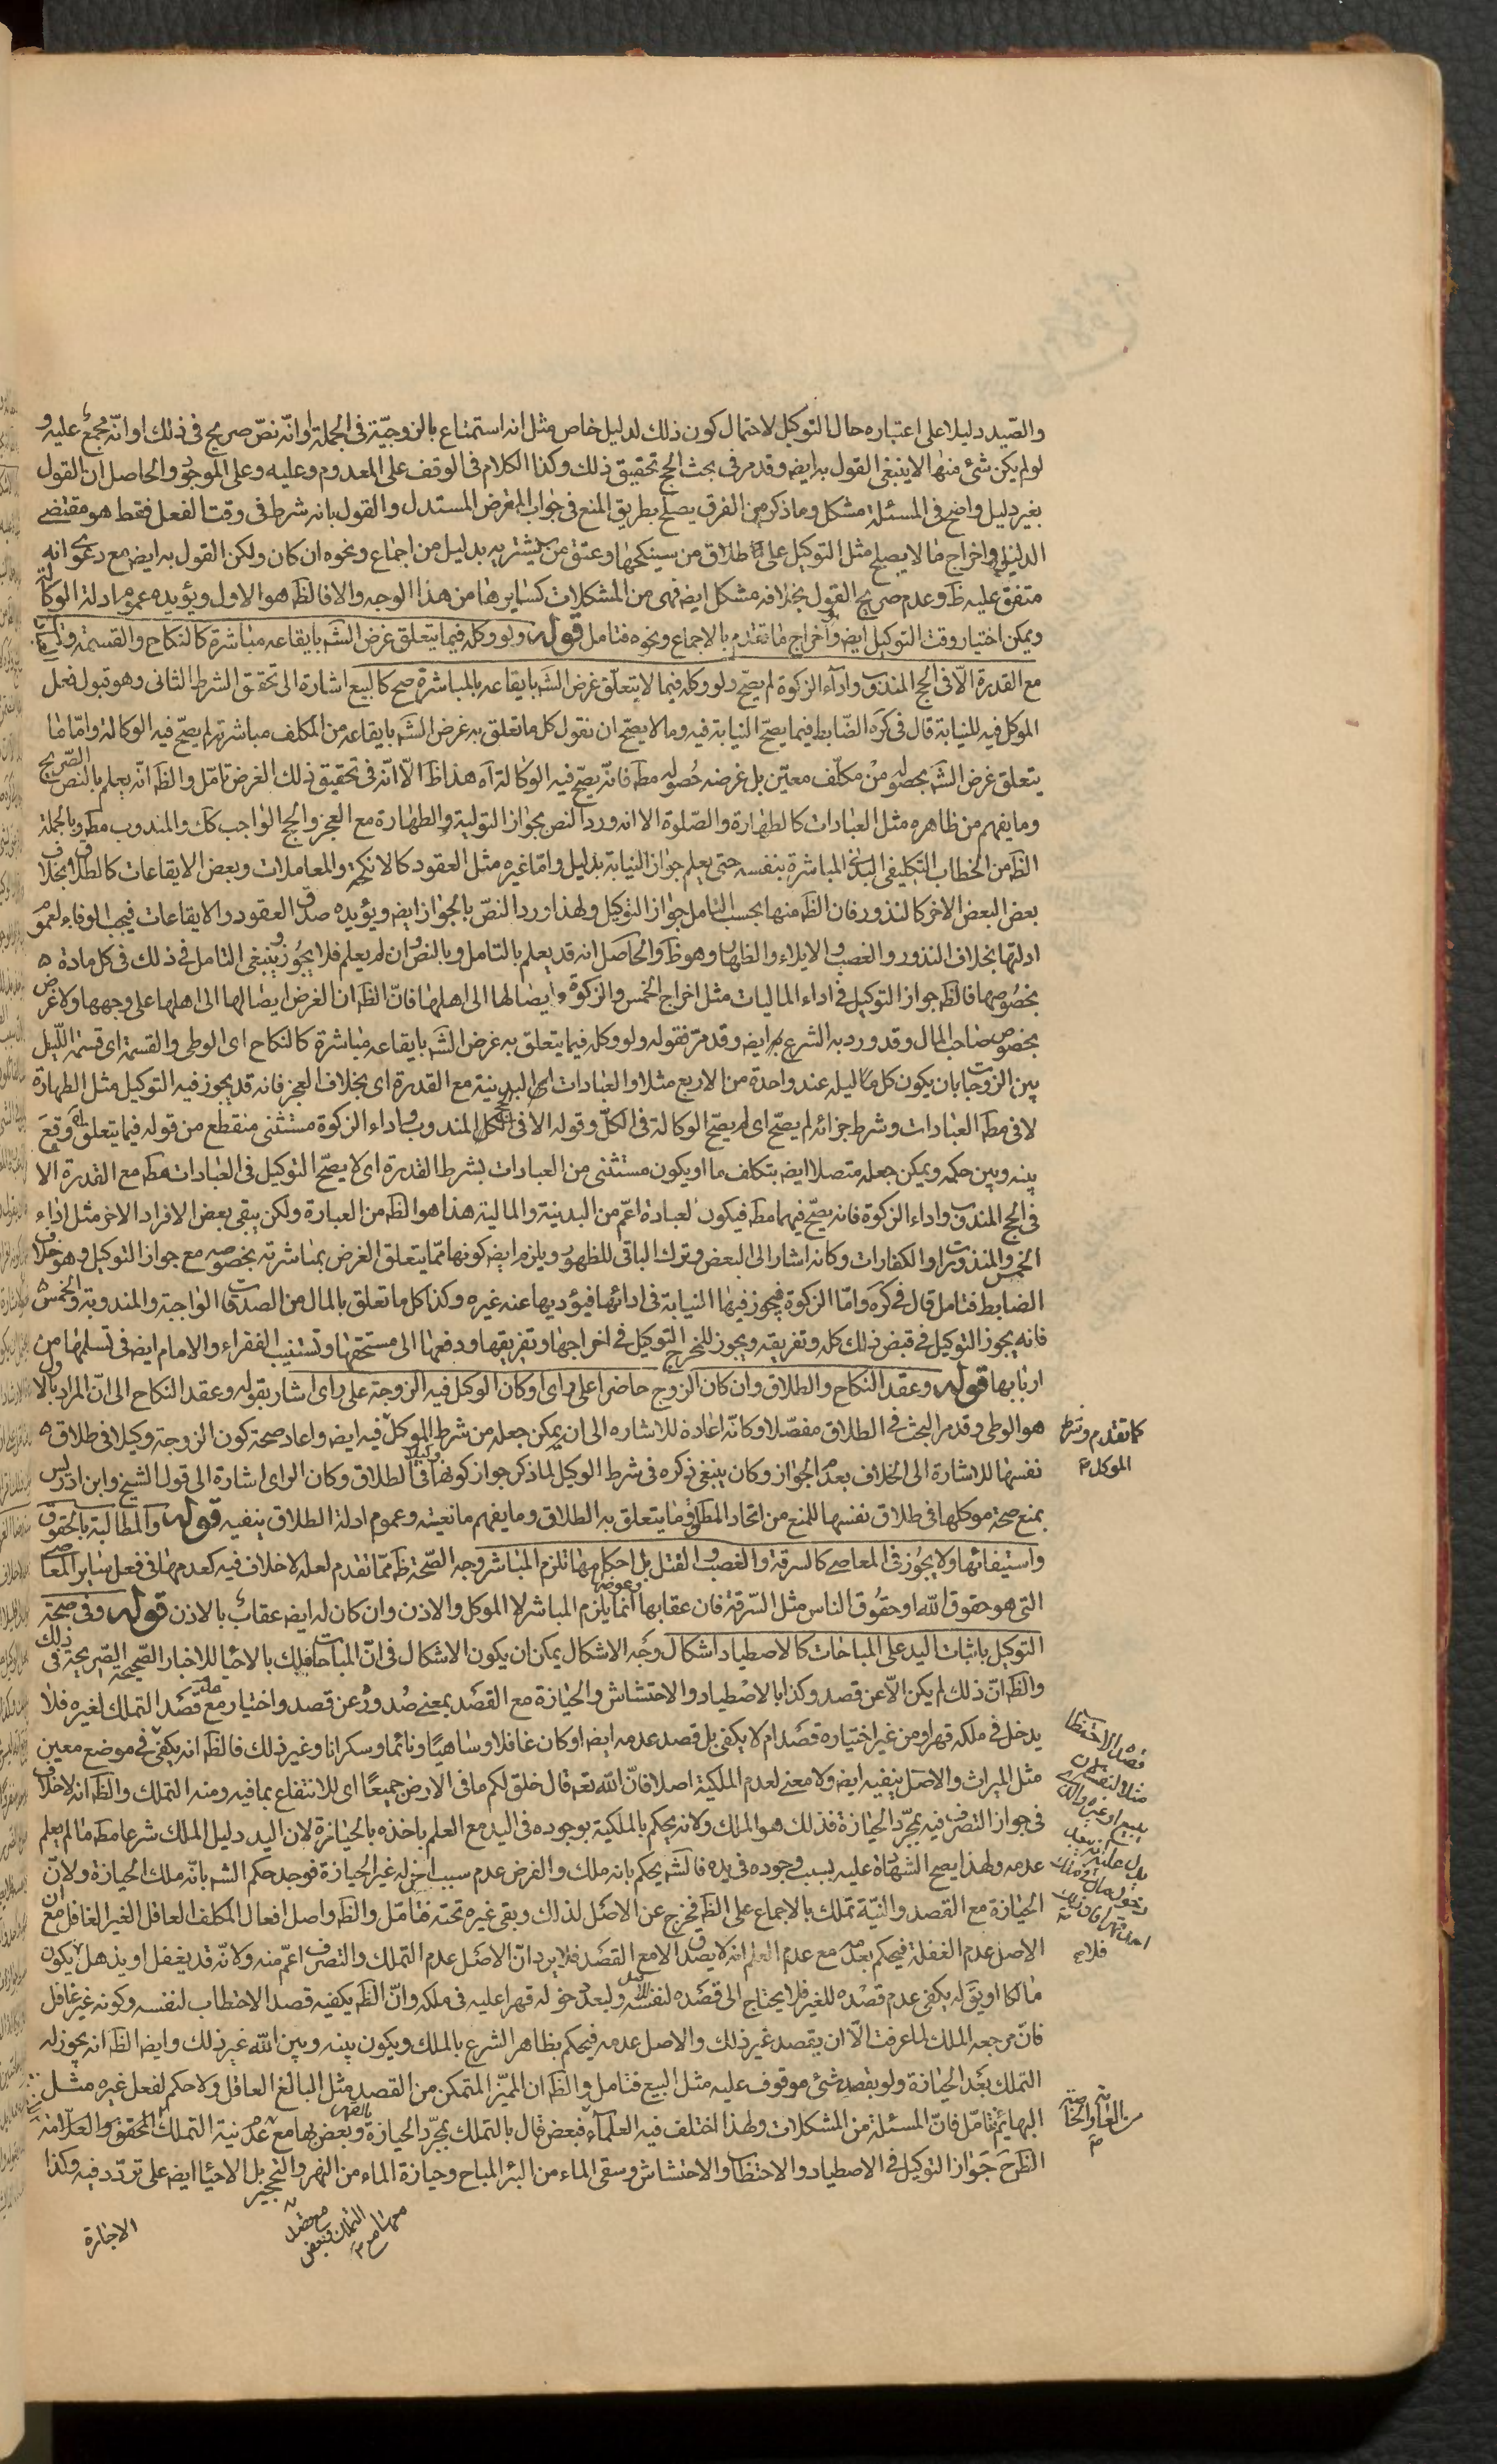 والصّيد دليلا على اعتباره حال التوكيل لاحتمال كون ذلك لدليل خاص مثل انه استمتاع بالزوجيّة فى الجملة او انّه نصّ صريح فى ذلك او انّه مجمع عليه و
لو لم يكن شئ منها لا ينبغى القول به ايضه وقد مر فى بحث الحج تحقيق ذلك وكذا الكلام فى الوقف على المعدوم وعليه وعلى الموجود والحاصل ان القول
بغير دليل واضح فى المسئلة مشكل وما ذكر من الفرق يصلح بطريق المنع فى جواب المفرض المستدل والقول بانه شرط فى وقت الفعل فقط هو مقتضى
الدليل واخراج ما لا يصلح مثل التوكيل على طلاق من سينكحها وعتق من يشتريه بدليل من اجماع ونحوه ان كان ولكن القول به ايضه مع دعوى انه
متفق عليه ظ وعدم صريح القول بخلافه مشكل ايضه فهى من المشكلات كسايرها من هذا الوجه والا فالظه هو الاول ويؤيده عموم ادلة الوكالة
ويمكن اختيار وقت التوكيل ايضه واخراج ما تقدم بالاجماع ونحوه فتامل قوله ولو وكله فيما يتعلق غرض الشه بايقاعه مباشرة كالنكاح والقسمة
مع القدرة الّا فى الحج المندوب واداء الزكوة لم يصحّ ولو وكله فيما لا يتعلّق غرض الشه بايقاعه بالمباشرة صح كالبيع اشارة الى تحقق الشرط الثانى وهو قبول فعل
الموكل فيه للنيابة قال فى كره الضّابط فيما يصحّ النيابة فيه وما لا يصحّ ان نقول كل ما تعلق به غرض الشه بايقاعه من المكلف مباشرة لم يصحّ فيه الوكالة وامّا ما
يتعلق غرض الشه بحصوله من مكلّف معيّن بل غرضه حُصوله مطه فانّه يصحّ فيه الوكالة آه هذا ظ الّا انّه فى تحقيق ذلك الغرض تامّل والظه انّه يعلم بالنص الصّريح
وما يفهم من ظاهره مثل العبادات كالطهارة والصّلوة الا انه ورد النص بجواز التولية والطهارة مع العجز والحج الواجب كك والمندوب مطه وبالجملة
الظه من الخطاب التكليفى البدنى المباشرة بنفسه حتى يعلم جواز النيابة بدليل وامّا غيره مثل العقود كالانكحة والمعاملات وبعض الايقاعات كالطلاق بخلاف
بعض البعض الاخر كالنذور فان الظه منها بحسب التامل جواز التوكيل ولهذا ورد النصّ بالجواز ايضه ويؤيده صدق العقود والايقاعات فيجب الوفاء لعموم
ادلتها بخلاف النذور والغصب والايلاء والظهار وهو ظ والحاصل انه قد يعلم بالتامل وبالنص وان لم يعلم فلا يجوز وينبغى التامل فى ذلك فى كل مادة
بخصوصها فالظه جواز التوكيل فى اداء الماليات مثل اخراج الخمس والزكوة وايصالها الى اهلها فانّ الظه ان الغرض ايصالها الى اهلها على وجهها ولا غرض
بخصوص صاحب المال وقد ورد به الشرع ايضه وقد مرّ فقوله ولو وكله فيما يتعلق به غرض الشه بايقاعه مباشرة كالنكاح اى الوطى والقسمة اى قسمة اللّيل
بين الزوجات بان يكون كل ليله عند واحدة من الاربع مثلا والعبادات اى البدينية مع القدرة اى بخلاف العجز فانه قد يجوز فيه التوكيل مثل الطهارة
لا فى مطه العبادات وشرط جزائه لم يصحّ اى لم يصحّ الوكالة فى الكلّ وقوله الا فى الحج المندوب واداء الزكوة مستثنى منقطع من قوله فيما يتعلق وقع
بينه وبين حكمه ويمكن جعله متصلا ايضه بتكلف ما او يكون مستثنى من العبادات بشرط القدرة اى لا يصحّ التوكيل فى العبادات مطه مع القدرة الا
فى الحج المندوب واداء الزكوة فانه يصحّ فيهما مطه فيكون لعبادة اعمّ من البدينة والمالية هذا هو الظه من العبارة ولكن يبقى بعض الافراد الاخر مثل اداء
الخمس والمنذورات والكفارات وكانه اشار الى البعض وترك الباقى للظهور ويلزم ايضه كونها ممّا يتعلق الغرض بمباشرته بخصوصه مع جواز التوكيل وهو خلاف
الضابط فتامل قال فى كره وامّا الزكوة فيجوز فيها النيابة فى ادائها فيؤديها عنه غيره وكذا كل ما تعلق بالمال من الصدقات الواجبة والمندوبة والخمس
فانه يجوز التوكيل فى قبض ذلك كله وتفريقه ويجوز للمخرج التوكيل فى اخراجها وتفريقها ودفعها الى مستحقها وتستنيب الفقراء والامام ايضه فى تسلمها من
اربابها قوله وعقد النكاح والطلاق وان كان الزوج حاضرا على راى او كان الوكيل فيه الزوجة على راى اشار بقوله وعقد النكاح الى انّ المراد بالاول
هو الوطى وقد مر البحث فى الطلاق مفصّلا وكانّه اعادة للاشاره الى ان يمكن جعله من شرط الموكل فيه ايضه واعاد صحة كون الزوجة وكيلا فى طلاق
نفسها للاشارة الى الخلاف بعدم الجواز وكان ينبغى ذكره فى شرط الوكيل لما ذكر جواز كونها وكيلا فى الطلاق وكان الراى اشارة الى قول الشيخ وابن ادريس
بمنع صحة موكلها فى طلاق نفسها للمنع من اتحاد المطلق وما يتعلق به الطلاق وما يفهم مانعيته وعموم ادلة الطلاق ينفيه قوله والمطالبة بالحقوق
واستيفائها ولا يجوز فى المعاصى كالسرقة والغصب والقتل بل احكامها تلزم المباشر وجه الصّحة ظه ممّا تقدم لعله لا خلاف فيه كعدمها فى فعل ساير المعاصى
التى هو حقوق الله او حقوق الناس مثل السّرقة فان عقابها وعوضها انما يلزم المباشر لا الموكل والاذن وان كان له ايضه عقاب بالاذن قوله وفى صحّة
التوكيل باثبات اليد على المباحات كالاصطياد اشكال وجه الاشكال يمكن ان يكون الاشكال فى انّ المباحات تملك بالاحياء للاخبار الصّحيحة الصّريحة فى ذلك
والظه انّ ذلك لم يكن الّا عن قصد وكذا بالاصطياد والاحتشاش والحيازة مع القصد بمعنى صُدوره عن قصد واختيار مع عدم قصد التملك لغيره فلا
يدخل فى ملكه قهرا ومن غير اختياره قصد ام لا يكفى بل قصد عدمه ايضه او كان غافلا وساهيًا ونائما وسكرانا وغير ذلك فالظه انه يكفى فى موضع معين
مثل الميراث والاصل ينفيه ايضه ولا معنى لعدم الملكية اصلا فانّ الله تعه قال خلق لكم ما فى الارض جميعًا اى للانتفاع بما فيه ومنه التملك والظه انه لا خلاف
فى جواز التصرف فيه بمجرّد الحيازة فذلك هو الملك ولانه يحكم بالملكية بوجوده فى اليد مع العلم باخذه بالحيازة لان اليد دليل الملك شرعا مطه ما لم يعلم
عدمه ولهذا يصح الشهادة عليه بسبب وجوده فى يده فالشه يحكم بانه ملك والفرض عدم سبب اخر له غير الحيازة فوجد حكم الشه بانّه ملك الحيازة ولانّ
الحيازة مع القصد والنيّة تملك بالاجماع على الظه فخرج عن الاصل لذاك وبقى غيره تحته فتامّل والظه واصل افعال المكلف العاقل الغير الغافل مع ان
الاصل عدم الغفلة فيحكم بعدمه مع عدم العلم انه لا يصدق الا مع القصد فلا يرد انّ الاصل عدم التملك والتصرف اعمّ منه ولانّه قد يغفل او يذهل لا يكون
مالكا او يقه يكفى عدم قصده للغير فلا يحتاج الى قصده لنفسه ولبعد دخوله قهرا عليه فى ملكه وانّ الظه يكفيه قصد الاحتطاب لنفسه وكونه غير غافل
فانّ مرجعه الملك لما عرفت الّا ان يقصد غير ذلك والاصل عدمه فيحكم بظاهر الشرع بالملك ويكون بينه وبين الله غير ذلك وايضه الظه انه يجوز له
التملك بعد الحيازة ولو بقصد شئ موقوف عليه مثل البيع فتامل والظه ان المميّز المتمكن من القصد مثل البالغ العاقل ولا حكم لفعل غيره مثل
البهائم فتامّل فانّ المسئلة من المشكلات ولهذا اختلف فيه العلماء فبعض قال بالتملك بمجرّد الحيازة وبعض بها مع عدم نية التملك المحقق والعلامة
الظه ح جَواز التوكيل فى الاصطياد والاحتطاب والاحتشاش وسقى الماء من البئر المباح وحيازة الماء من النهر والتحجير بل الاحياء ايضه على تردّد فيه وكذا
الاجازة
كما تقدم وشرط
الموكل م